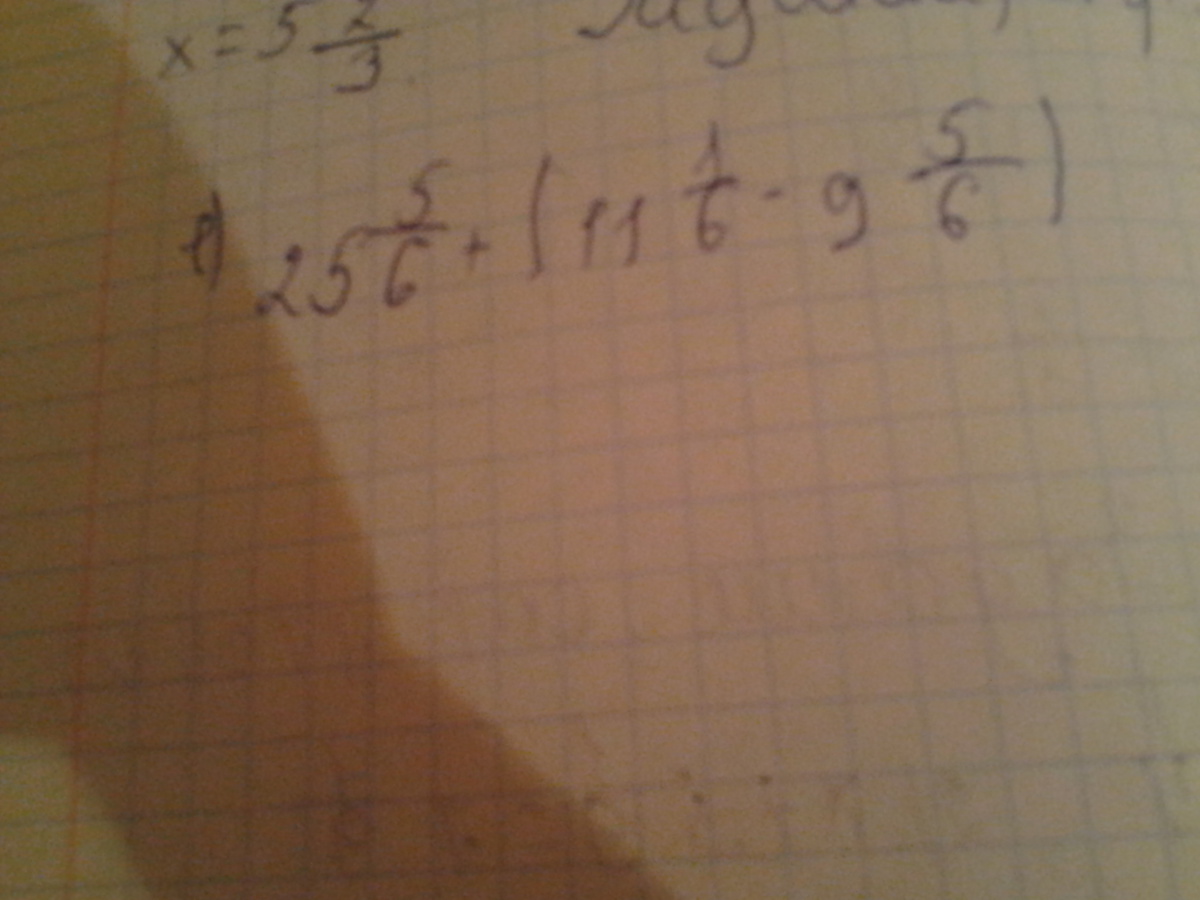 x = 5 2/3
1) 25 5/6 + (11 1/6 - 9 5/6)